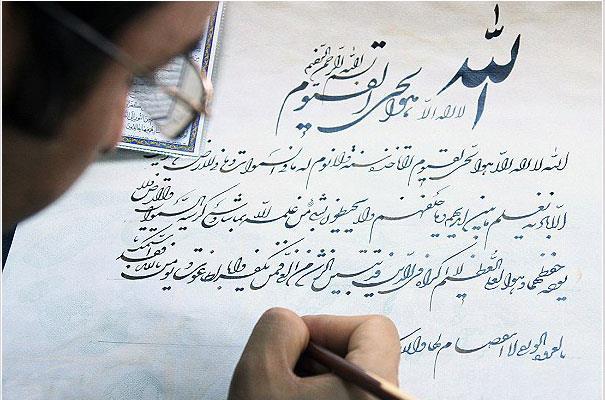 الله
لا اله الا هو الحی القیوم
بسم الله الرحمن الرحیم
الله لا اله الا هو الحی القیوم لا تاخذه سنة و لا نوم له ما فی السموات و ما فی الارض
الا باذنه یعلم ما بین ایدیهم و ما خلفهم و لا یحیطون بشیء من علمه الا بما شاء وسع کرسیه السموات و الارض و لا
یوده حفظهما و هو العلی العظیم لا اکراه فی الدین قد تبین الرشد من الغی فمن یکفر بالطاغوت و یومن بالله فقد استمسک
بالعروة الوثقی لا انفصام لها والله